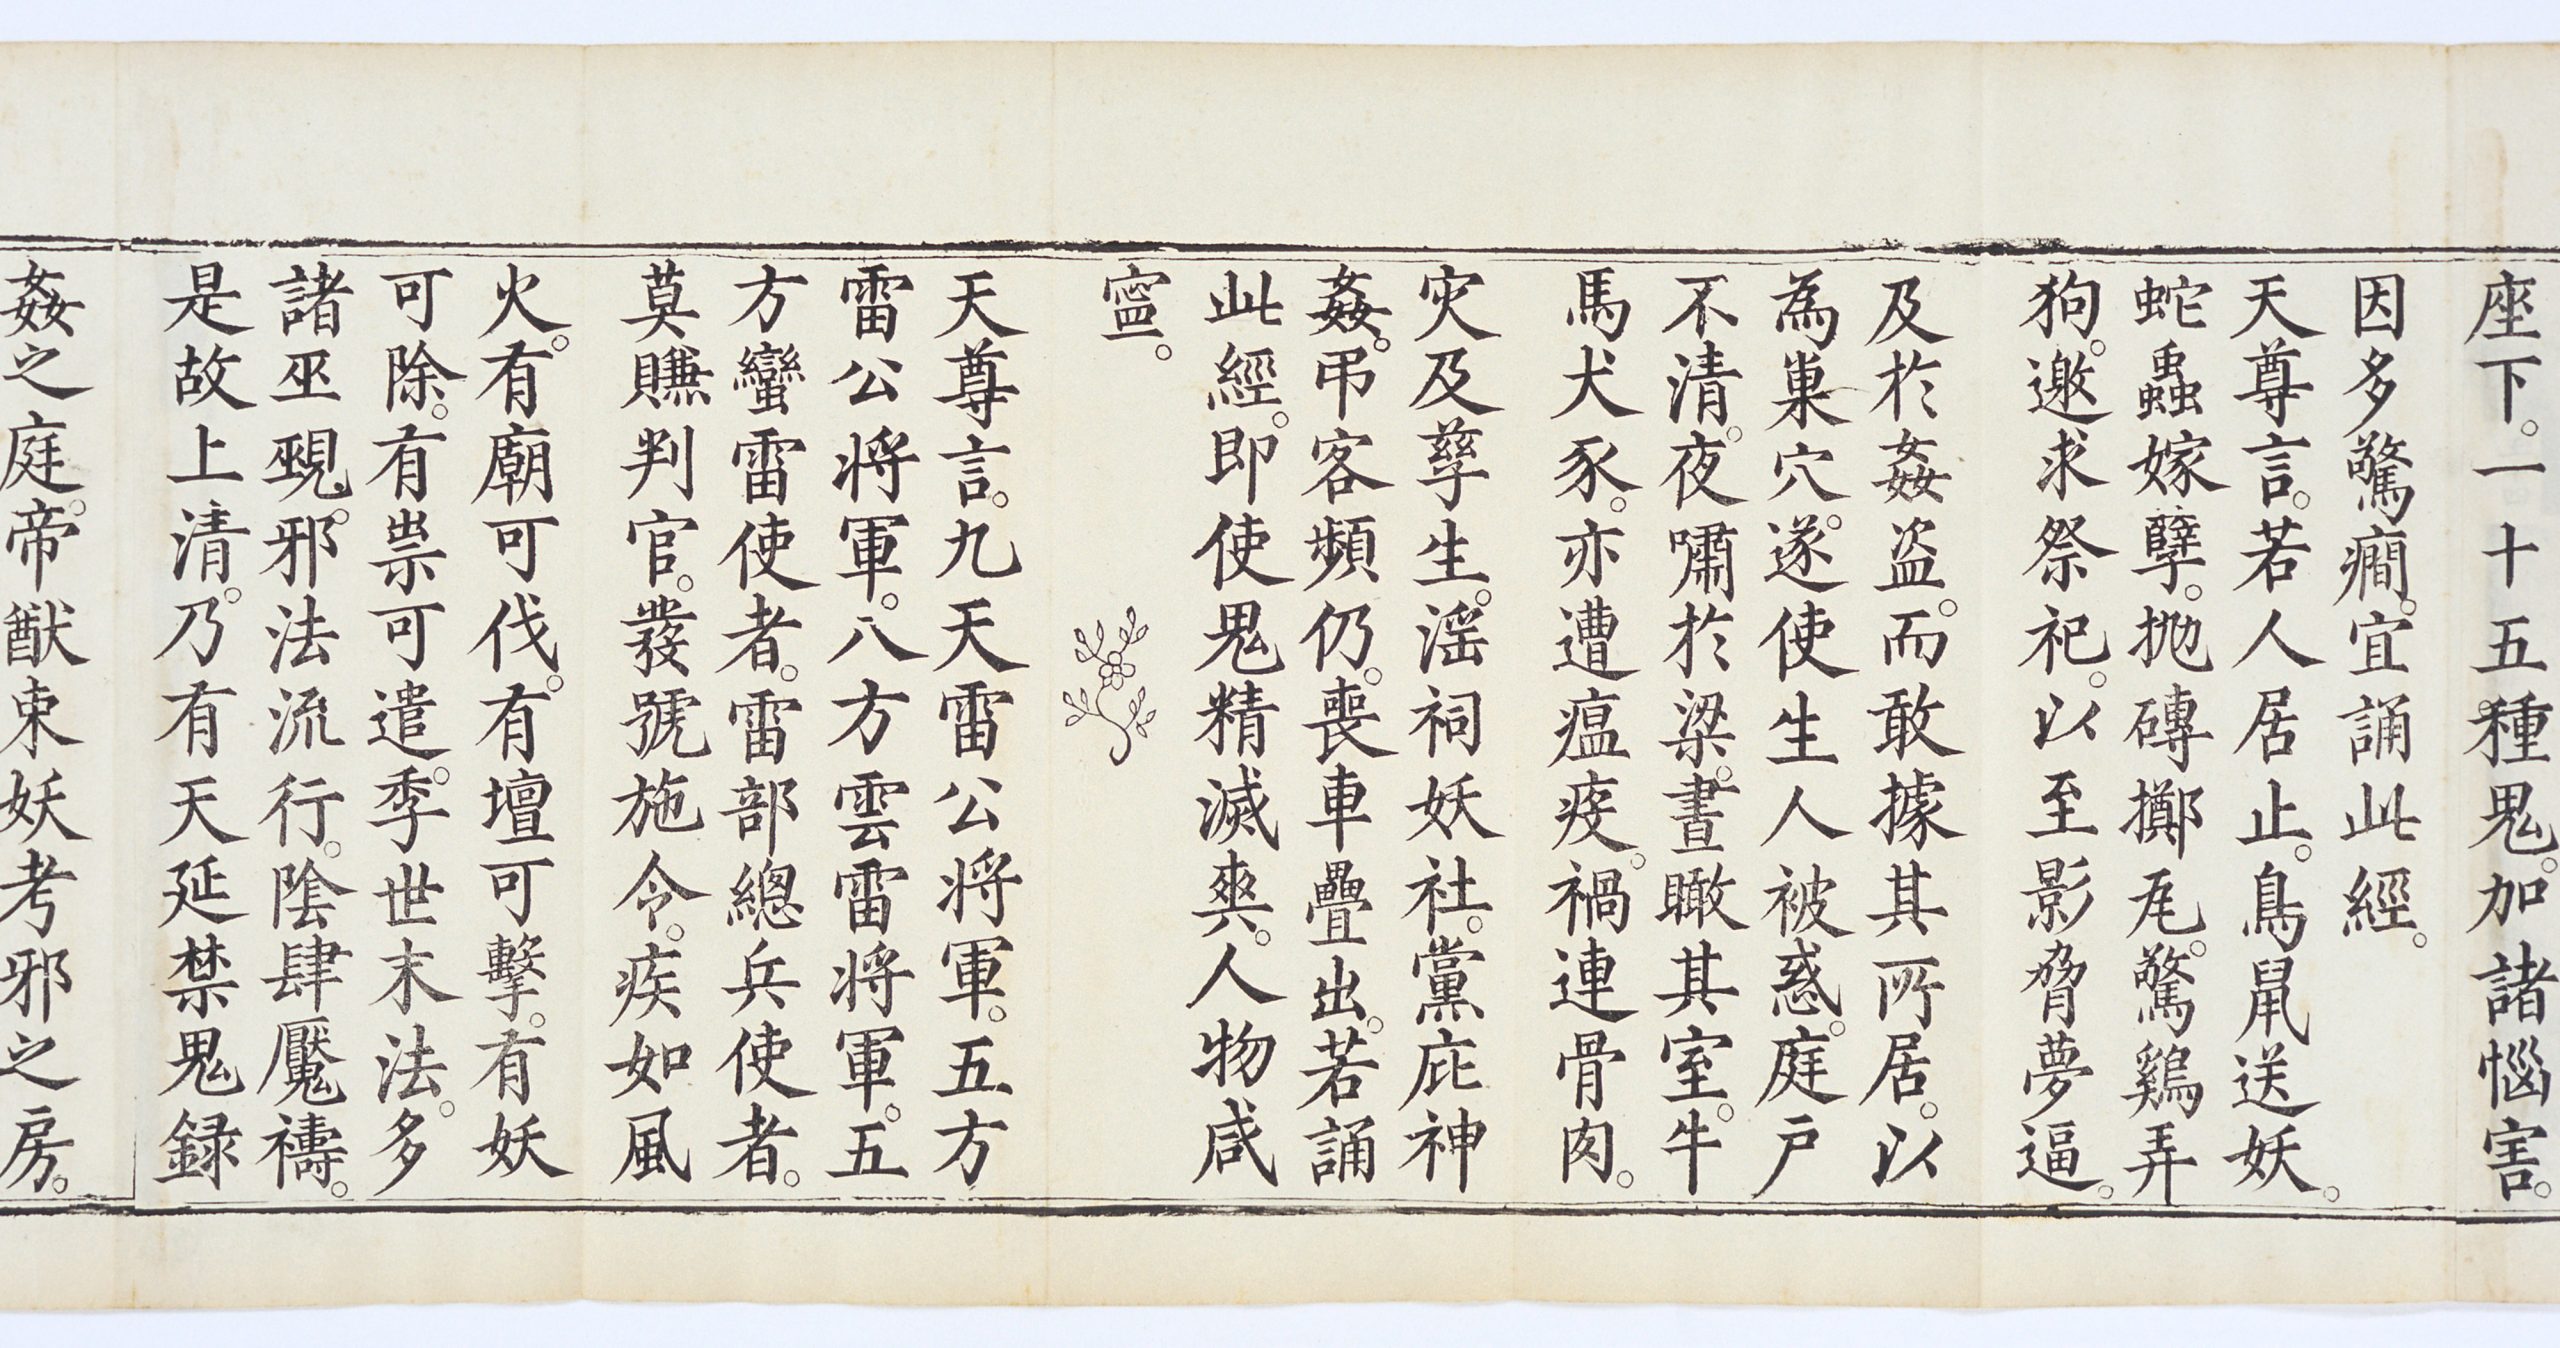 座下。一十五種鬼。加諸惱害。
因多驚癇。宜誦此經。
天尊言。若人居止。鳥鼠送妖。
蛇蟲嫁孽。拋磚擲瓦。驚鷄弄
狗。邀求祭祀。以至影脅夢逼。
及於姦盜。而敢據其所居。以
為巢穴。遂使生人被惑。庭戶
不清。夜嘯於梁。晝瞰其室。牛
馬犬豕。亦遭瘟疫。禍連骨肉。
灾及孳生。淫祠妖社。黨庇神
姦。弔客頻仍。喪車疊出。若誦
此經。即使鬼精滅爽。人物咸
寧。
天尊言。九天雷公將軍。五方
雷公將軍。八方雲雷將軍。五
方蠻雷使者。雷部總兵使者。
莫賺判官。發號施令。疾如風
火。有廟可伐。有壇可擊。有妖
可除。有祟可遣。季世末法。多
諸巫覡。邪法流行。陰肆魘禱。
是故上清。乃有天延禁鬼録
姦之庭。帝猷束妖考邪之房。